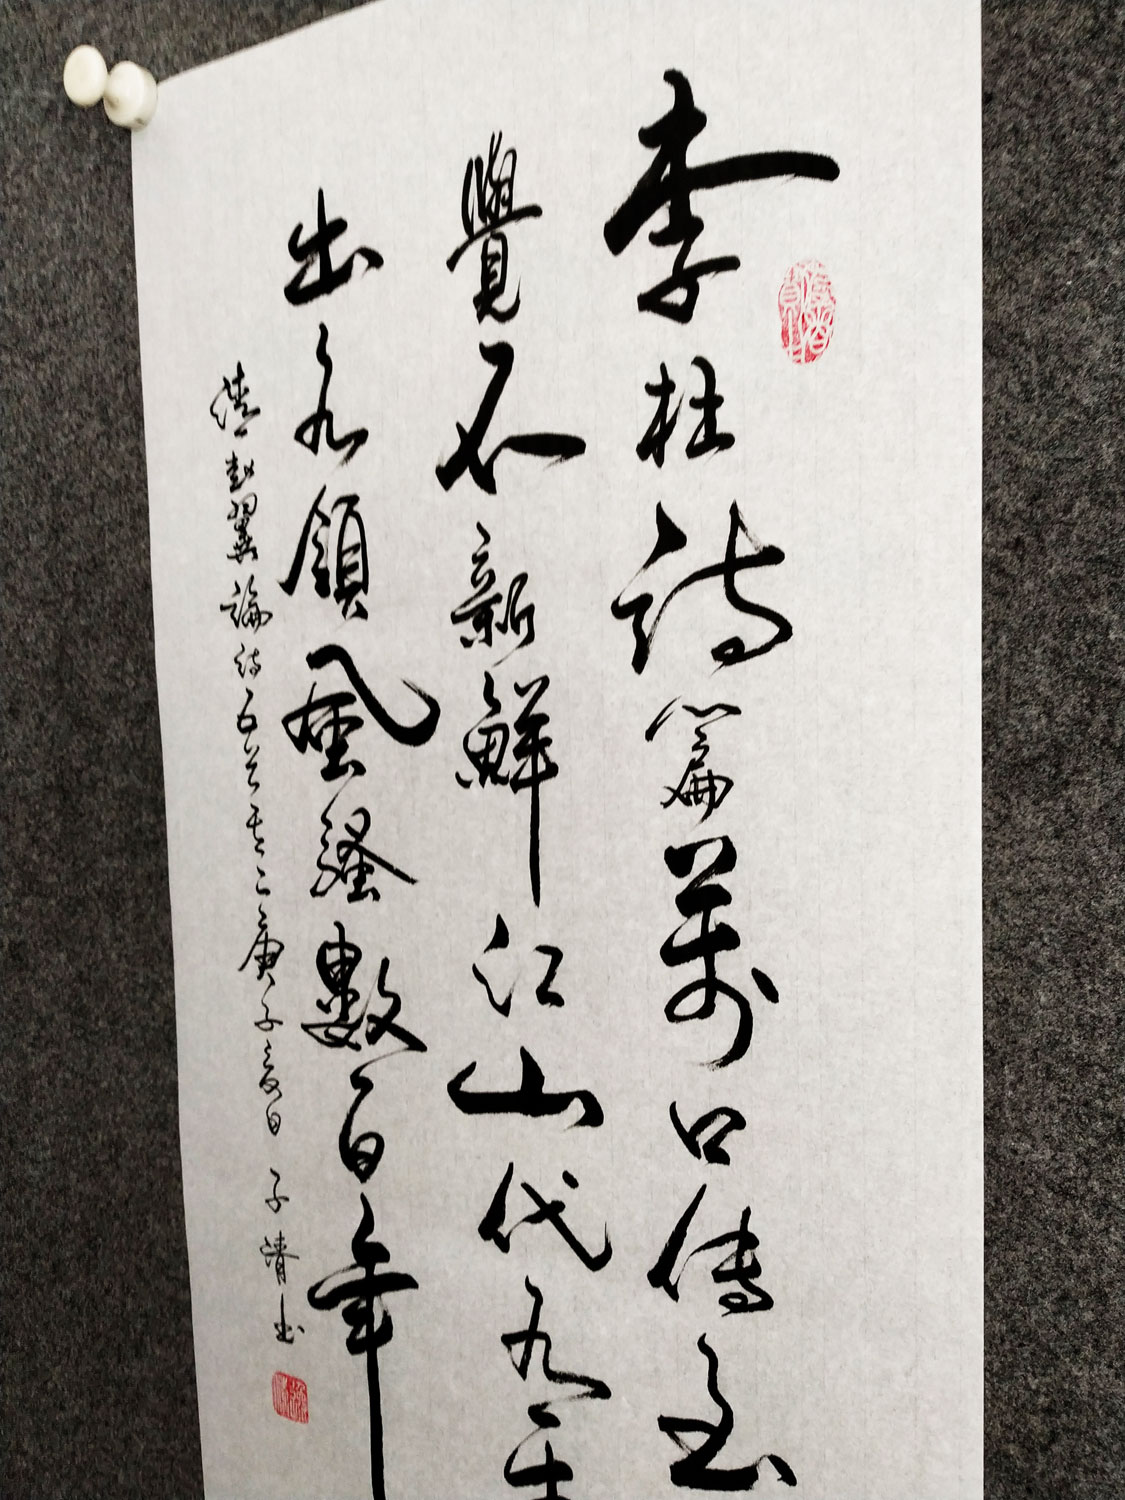 李杜詩篇萬口傳至
覺不新鮮江山代有才
出各領風騷數百年
清趙翼論詩五首其二庚子夏日 子清书